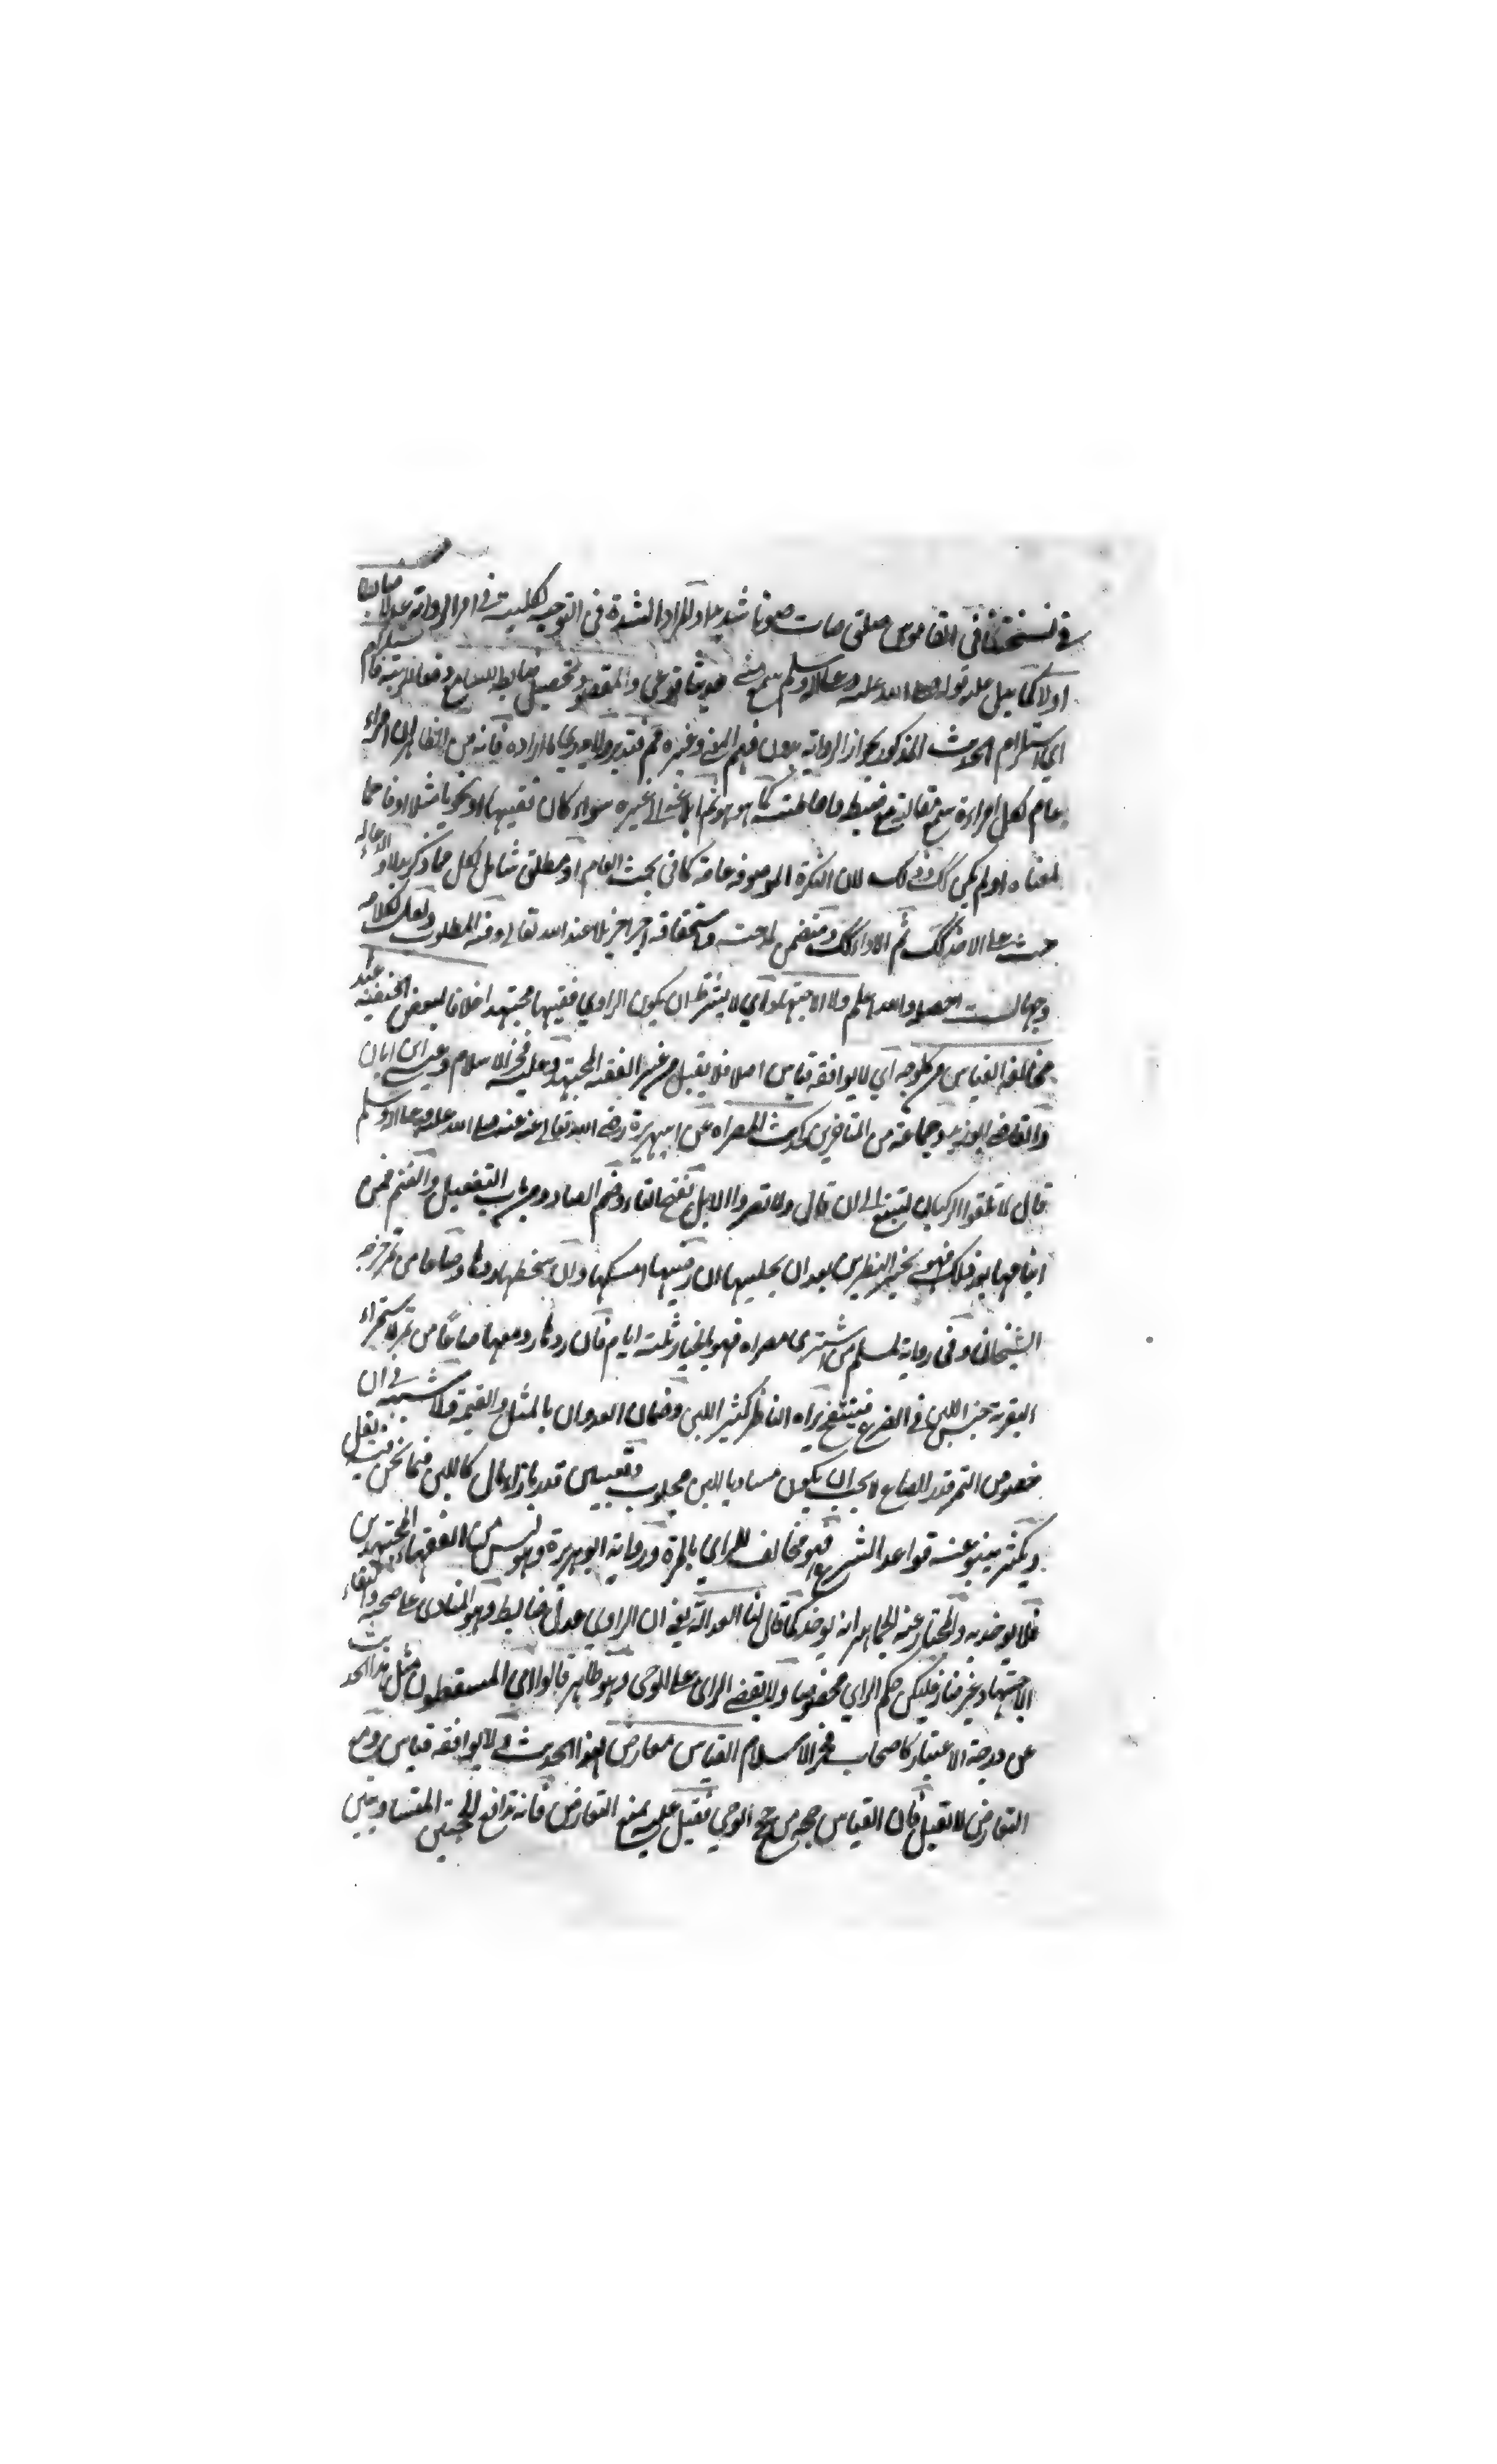 في نسختنا في القاموس صلق صات صوتا شديدا والمراد الشدة في التوجيه لكليته في امر الرواية عدلا ضابطا
اولا كما يدل عليه قوله صلى الله عليه وعلى اله وسلم سمع منى حديثا فوعى والمقصود تحصيل ضابط للسامع دفعا للريبة فاستلزام
اي استلزام الحديث المذكور بجواز الرواية بدون فهم المعنى وغيره فتدبر ولا يعدي كما اراده فانه من الظاهر ان امراء
عام لكل امراءة سمع مقالته مع ضبطه واحاطته كما هو هو ثم ابلاغه الى غيره سواء كان فقيها او نحويا مثلا او فاهما
لمعناه او لم يكن كك وذلك لان النكرة الموصوفة عامة كما في بحث العام او مطلق شامل لكل مما ذكر بدلا والدعاء له
حث على الاخذ كك ثم الاداء كك ومتضمن لمدحته واستحقاقه اجرا جزيلا عند الله تعالى وفيه المطلوب ولعل لكلامه
وجها لست احصله والله اعلم ولا الاجتهاد اي لا يشترط ان يكون الراوي فقيها مجتهدا خلافا لبعض الحنفية عند
مخالفة القياس من كل وجه اي لا يوافقه قياس اصلا فلا يقبل من غير الفقيه المجتهد وعليه فخر الاسلام وعيسى ابن ابان
والقاضي ابو زيد وجماعة من المتاخرين كحديث المصراه عن ابي هريرة رضي الله تعالى عنه عنه صلى الله عليه وعلى اله وسلم
قال لا تلقوا الركبان لتبتغ الى ان قال ولا تصروا الابل بفتح التاء وضم الصاد ومن باب التفعيل والغنم فمن
ابتاعها بعد ذلك فهو بخير النظرين بعد ان يحلبها ان رضيها امسكها وان سخطها ردها وصاعا من تمر اخرجه
الشيخان وفي رواية لمسلم من اشترى مصراه فهو بالخيار ثلثة ايام فان ردها رد معها صاعا من تمر لا سمراء
التصرية حبس اللبن في الضرع فينتفخ يراه الناظر كثير اللبن وضمان العدوان بالمثل والقيمة ولا شبهة في ان
خصوص التمر قدر الصاع لا يجب ان يكون مساويا للبن محلوب وتعيين قدر بازاء مال كاللبن فيما نحن فيه يقل
ويكثر ينبو عنه قواعد الشرع فهو مخالف للراي بالمرة ورواية ابو هريرة وهو ليس من الفقهاء المجتهدين
فلا يوخذ به والمختار عند الجماهير انه يوخذ كما قال لنا العدالة يعني ان الراوي عدل ضابط وهو المنادى على صحبه وانتفاء
الاجتهاد غير ضار فليكن حكم الراي مخصوصا ولا يقضى الراى على الوحي وهو ظاهر قالوا اي المسقطون مثل هذا الحديث
عن درجة الاعتبار كاصحاب فخر الاسلام القياس معارض لهذا الحديث في لا يوافقه قياس ومع
التعارض لا تقبل فان القياس حجة من حجج الوحي فقيل عليه بمنع التعارض فانه تدافع الحجتين المتساويتين